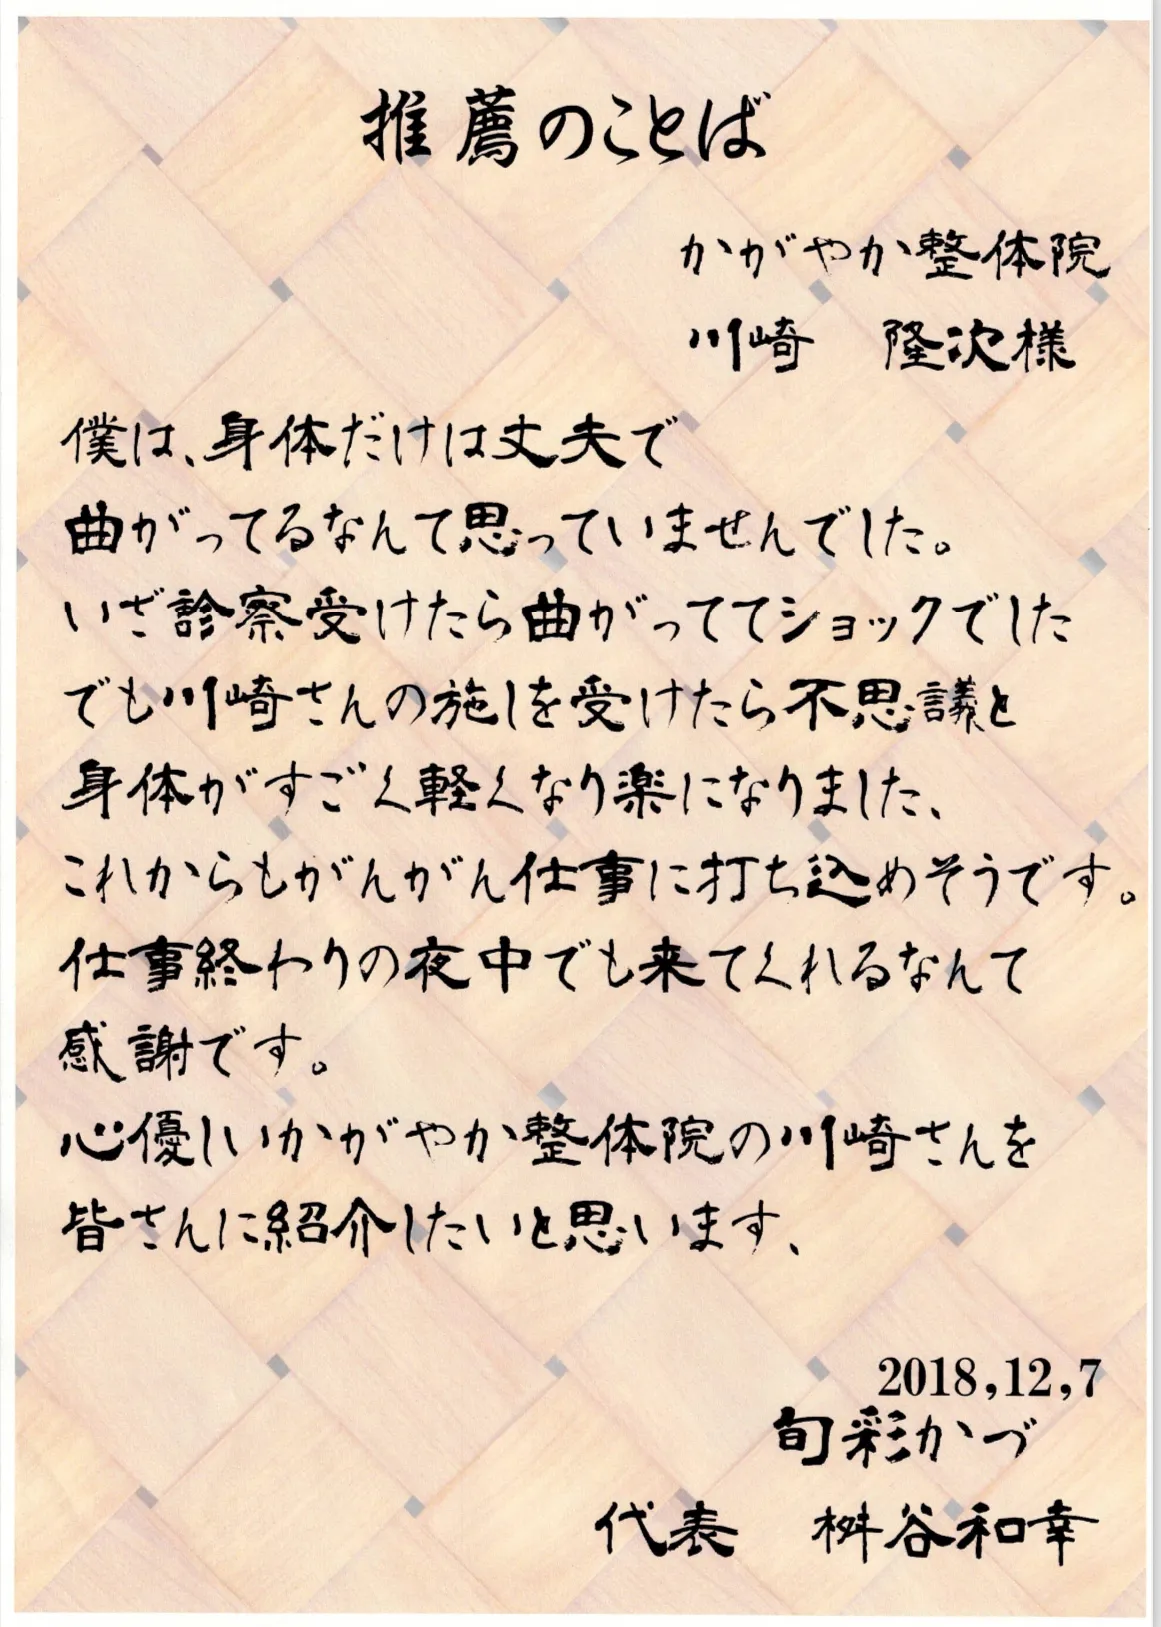 推薦のことば
かがやか整体院
川崎　隆次様
僕は、身体だけは丈夫で
曲がってるなんて思っていませんでした。
いざ診察受けたら曲がっててショックでした
でも川崎さんの施しを受けたら不思議と
身体がすごく軽くなり楽になりました、
これからもがんがん仕事に打ち込めそうです。
仕事終わりの夜中でも来てくれるなんて
感謝です。
心優しいかがやか整体院の川崎さんを
皆さんに紹介したいと思います、
2018,12,7
旬彩かづ
代表　桝谷和幸